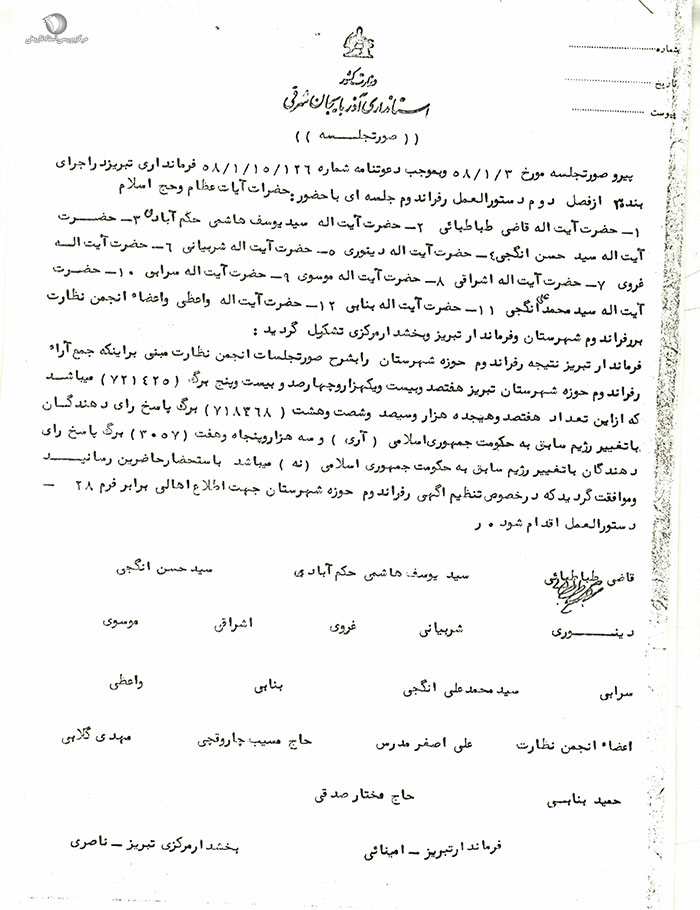 مرکز بررسی اسناد تاریخی
شماره
تاریخ
پیوست
وزارت کشور
استانداری آذربایجان شرقی
(( صورتجلسه ))
پیرو صورتجلسه مورخ ۵۸/۱/۳ وبموجب دعوتنامه شماره ۵۸/۱/۱۵/۱۲۶ فرمانداری تبریزدراجرای
بند۳ ازفصل دوم دستورالعمل رفراندوم جلسه ای باحضور: حضرات آیات عظام وحج اسلام
۱ـ حضرت آیت اله قاضی طباطبائی ۲ـ حضرت آیت اله سیدیوسف هاشمی حکم آبادی ۳ـ حضـــرت
آیت اله سید حسن انگجی ۴ـ حضرت آیت اله دینوری ۵ـ حضرت آیت اله شربیانی ۶ـ حضرت آیت الــه
غروی ۷ـ حضرت آیت اله اشراقی ۸ـ حضرت آیت اله موسوی ۹ـ حضرت آیت اله سرابی ۱۰ـ حضــرت
آیت اله سیدمحمدعلی انگجی ۱۱ـ حضرت آیت اله بنابی ۱۲ـ حضرت آیت اله واعظی واعضاء انجمن نظارت
بررفراندوم شهرستان وفرماندار تبریز وبخشدارمرکزی تشکیل گردید :
فرماندار تبریز نتیجه رفراندوم حوزه شهرستان رابشرح صورتجلسات انجمن نظارت مبنی براینکه جمع آراء
رفراندوم حوزه شهرستان تبریز هفتصد وبیست ویکهزاروچهارصد و بیست وپنج برگ (۷۲۱۴۲۵) میباشـد
که ازاین تعداد هفتصد وهیجده هزار وسیصد وشصت وهشت ( ۷۱۸۳۶۸) برگ پاسخ رای دهندگــان
باتغییر رژیم سابق به حکومت جمهوری اسلامی (آری) و سه هزاروپنجاه وهفت (۳۰۵۷) برگ پاسخ رای
دهندگان باتغییر رژیم سابق به حکومت جمهوری اسلامی (نه) میباشد باستحضارحاضرین رسانیـــد
وموافقت گردیدکه درخصوص تنظیم اگهی رفراندوم حوزه شهرستان جهت اطلاع اهالی برابر فرم ۲۸ ـ
دستورالعمل اقدام شود ۰ ر
قاضی طباطبائی سید یوسف هاشمی حکم آبادی سید حسن انگجی
دینـــوری شربیانی غروی اشراقی موسوی
سرابی سیدمحمدعلی انگجی بنابی واعظی
اعضاء انجمن نظارت علی اصغر مدرس حاج مسیب چاروقچی مهدی گلابی
حمید بنابسی حاج مختار صدقی
فرماندارتبریز ـ امینائی بخشدارمرکزی تبریز ـ ناصری